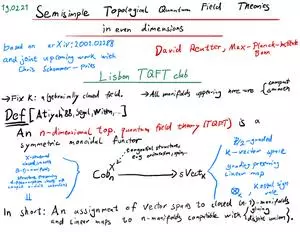 13.02.21
Semisimple Topological Quantum Field Theories
in even dimensions
based on arXiv:2001.02288
and joint upcoming work with
Chris Schommer-Pries
David Reutter, Max-Planck-Institute
Bonn
Lisbon TQFT club
→ Fix k algebraically closed field.
→ All manifolds appearing here are compact
smooth
Def [Atiyah88, Segal, Witten, ...]
An n-dimensional top. quantum field theory (TQFT) is a
symmetric monoidal functor
tangential structure,
e.g. orientation, spin,
X
Cob_n → sVect_k
Z/2-graded
k-vector space
grading preserving
linear map
⊗, Koszul sign
rule
In short: An assignment of vector spaces to closed (n-1)-manifolds
and linear maps to n-manifolds compatible with {gluing
disjoint union}.